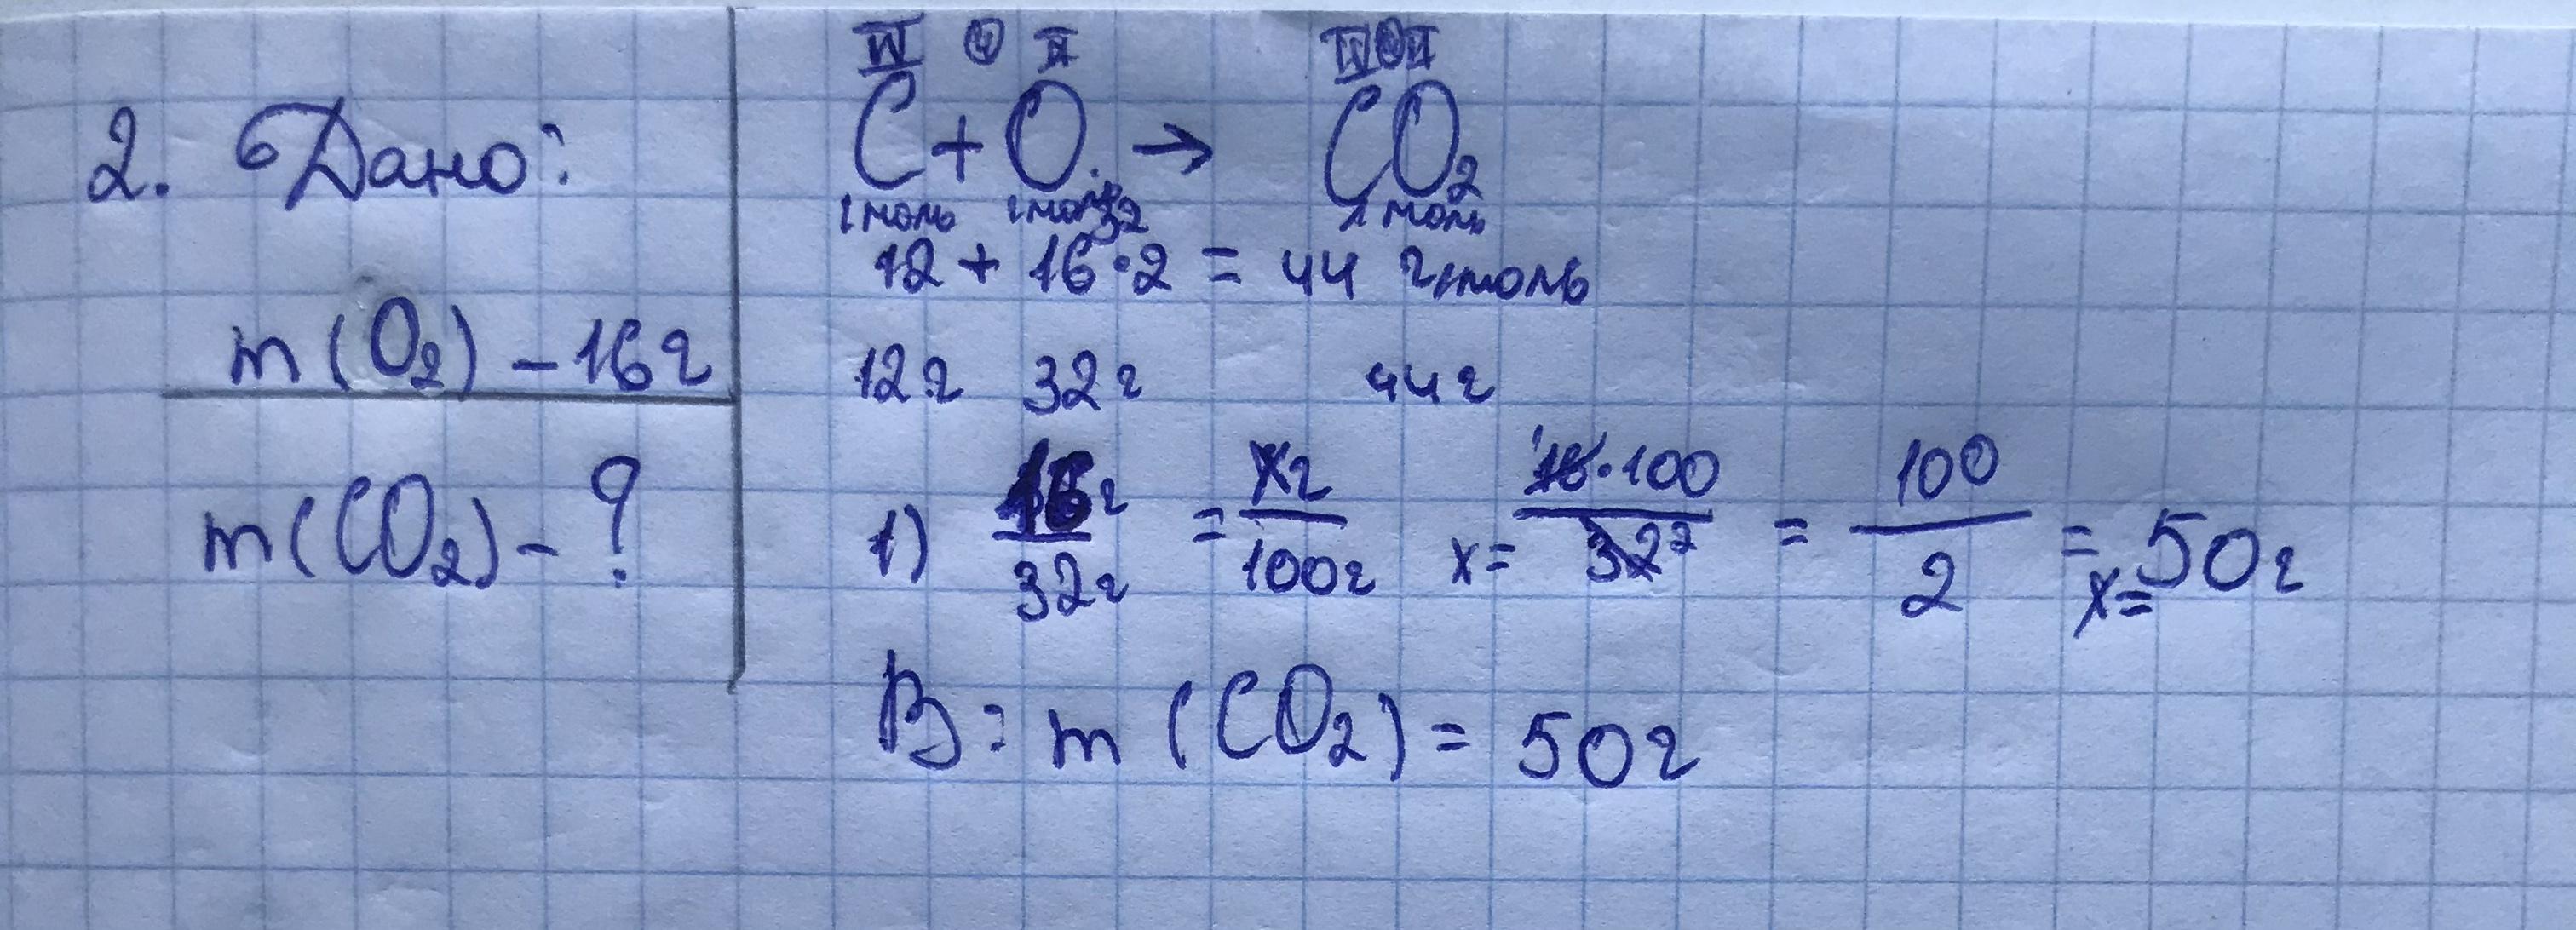 2. Дано:
m(O₂) – 16г
m(CO₂) – ?
IV II IV II
C + O → CO₂
1 моль 1 моль 1 моль
32
12 + 16·2 = 44 г/моль
12г 32г 44г
1) 16г/32г = xг/100г x = 16·100/32 2 = 100/2 = x= 50г
В: m (CO₂) = 50г